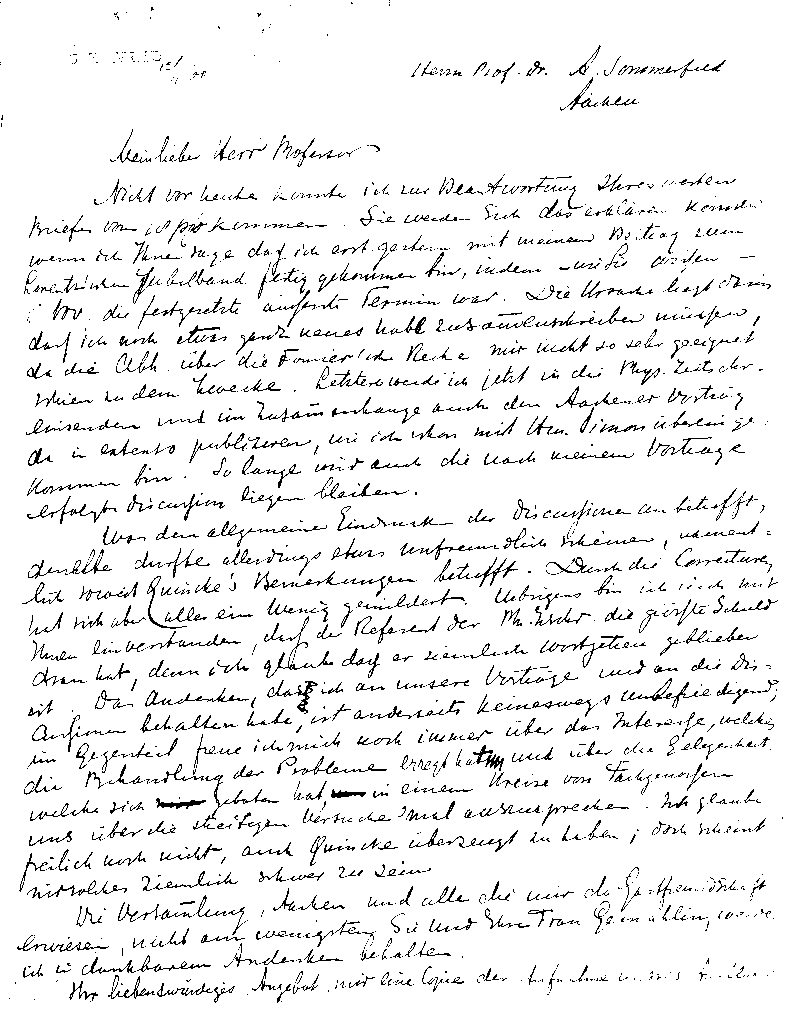 Herrn Prof. Dr. A. Sommerfeld
Aachen
Mein lieber Herr Professor
Nicht vor heute konnte ich zur Beantwortung Ihres werten
Briefes vom kommen. Sie werden Sich das erklären können
wenn ich Ihnen sage daß ich erst gestern mit meinem Beitrag zum
Lorentz'schen Jubelband fertig gekommen bin, indem – wie Sie wissen –
1 Nov. die festgesetzte äußerste Termin war. Die Ursache liegt darin
daß ich noch etwas ganz neues habe zusammenschreiben müssen,
da die Abh. über die Fourier'sche Reihe mir nicht so sehr geeignet
schien zu dem Zwecke. Letztere werde ich jetzt in die Phys. Zeitschr.
einsenden und im Zusammenhange auch den Aachener Vortrag
da in extenso publizieren, wie ich schon mit Hrn. Simon übereinge-
kommen bin. So lange wird auch die nach meinem Vortrage
erfolgte Discussion liegen bleiben.
Was den allgemeine Eindruck der Discussionen an betrifft,
derselbe dürfte allerdings etwas unfreundlich scheinen, nament-
lich soweit Quincke's Bemerkungen betrifft. Durch die Correcturen
hat sich aber alles ein Wenig gemildert. Uebrigens bin ich mit
Ihnen einverstanden, daß der Referent der Ph. Zschr. die größte Schuld
dran hat, denn ich glaube daß er ziemlich wortgetreu geblieben
ist. Das Andenken, daß ich an unsere Vorträge und an die Dis-
cussionen behalten habe, ist anderseits keineswegs unbefriedigend,
im Gegenteil freue ich mich noch immer über das Interesse, welches
die Behandlung der Probleme erregt hat und über die Gelegenheit
welche sich geboten hat, in einem Kreise von Fachgenossen
uns über die streitigen Versuche 'mal auszusprechen. Ich glaube
freilich noch nicht, auch Quincke überzeugt zu haben; doch scheint
mir solches ziemlich schwer zu sein
Die Versammlung, Aachen und alle die mir da Gastfreundschaft
erwiesen, nicht am wenigsten Sie und Ihre Frau Gemahlin, werde
ich in dankbarem Andenken behalten.
Ihr liebenswürdiges Angebot, mir eine Copie der Aufnahme